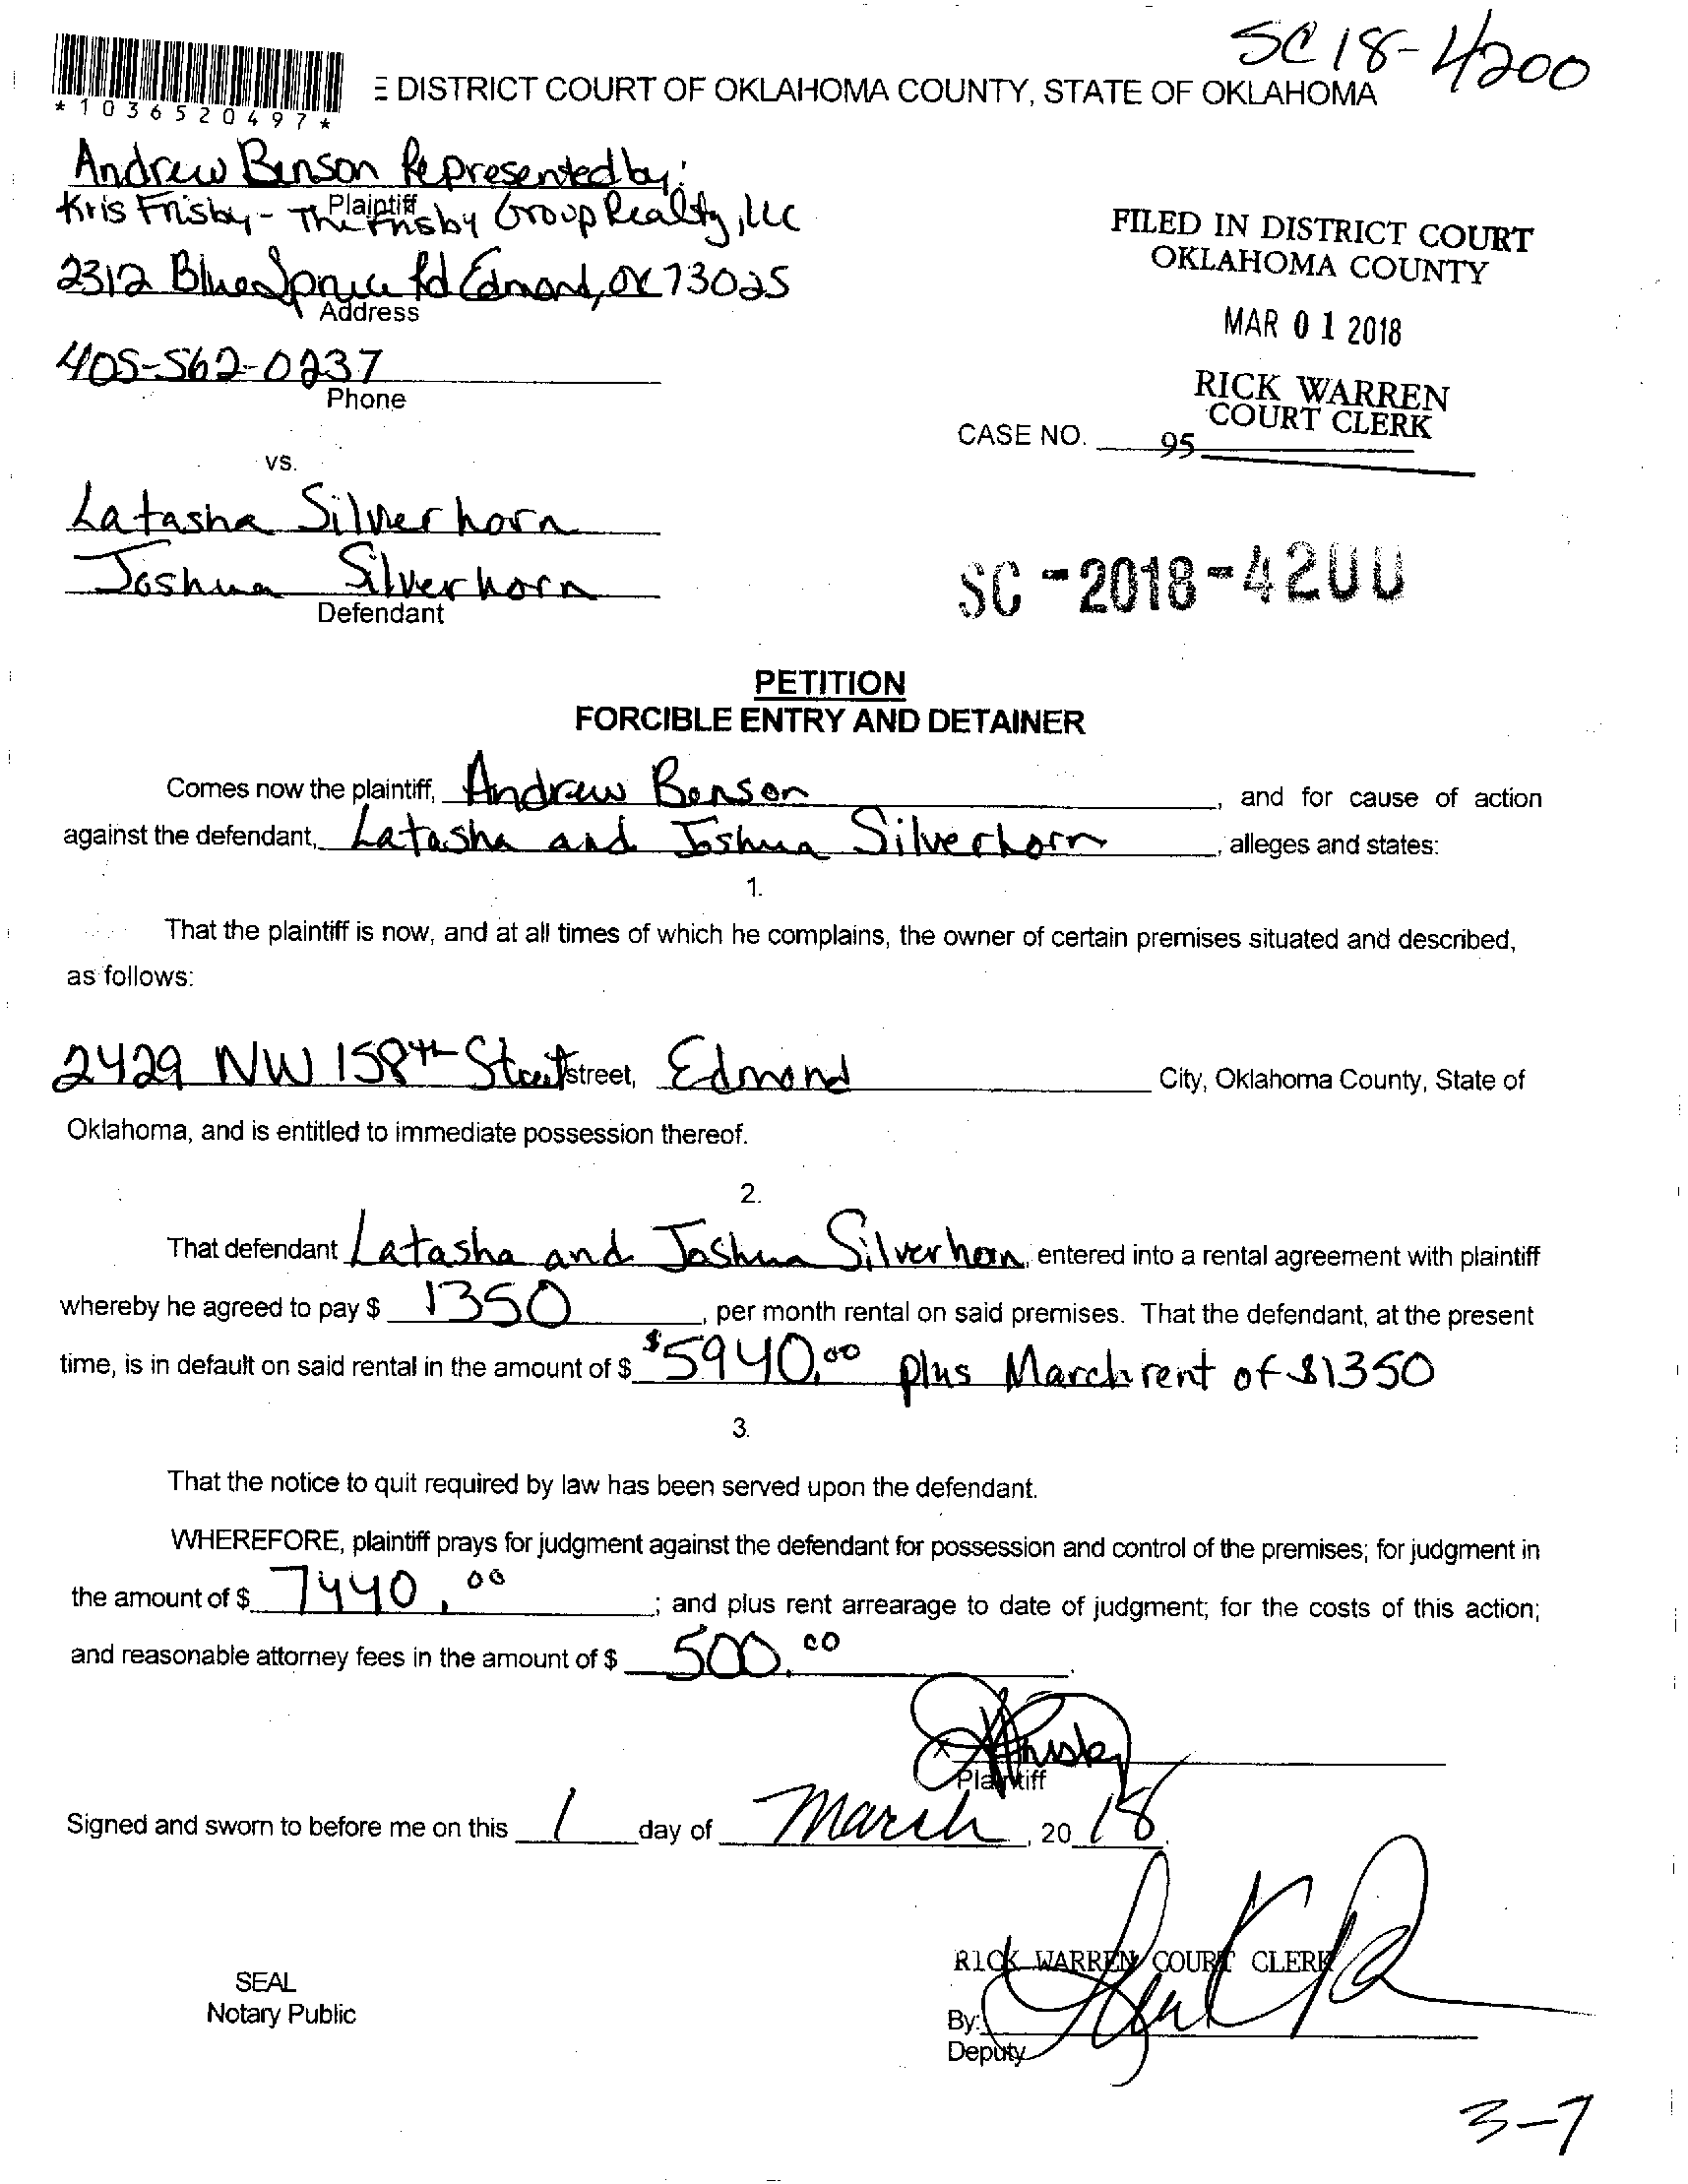 SC18-4200
*1036520497*
E DISTRICT COURT OF OKLAHOMA COUNTY, STATE OF OKLAHOMA
Andrew Benson Represented by:
Plaintiff
Kris Frisby - The Frisby Group Realty, LLC
2312 Blue Spruce Rd Edmond, OK 73025
Address
405-562-0237
Phone
FILED IN DISTRICT COURT
OKLAHOMA COUNTY
MAR 01 2018
RICK WARREN
COURT CLERK
CASE NO. 95
vs.
Latasha Silverhorn
Joshua Silverhorn
Defendant
SC-2018-4200
PETITION
FORCIBLE ENTRY AND DETAINER
Comes now the plaintiff, Andrew Benson, and for cause of action
against the defendant, Latasha and Joshua Silverhorn, alleges and states:
1.
That the plaintiff is now, and at all times of which he complains, the owner of certain premises situated and described,
as follows:
2429 NW 158th Street street, Edmond City, Oklahoma County, State of
Oklahoma, and is entitled to immediate possession thereof.
2.
That defendant Latasha and Joshua Silverhorn, entered into a rental agreement with plaintiff
whereby he agreed to pay $ 1350, per month rental on said premises. That the defendant, at the present
time, is in default on said rental in the amount of $ $5940.00 plus March rent of $1350
3.
That the notice to quit required by law has been served upon the defendant.
WHEREFORE, plaintiff prays for judgment against the defendant for possession and control of the premises; for judgment in
the amount of $ 7440.00; and plus rent arrearage to date of judgment; for the costs of this action;
and reasonable attorney fees in the amount of $ 500.00.
Plaintiff
Signed and sworn to before me on this 1 day of March, 2018.
RICK WARREN COURT CLERK
SEAL
Notary Public
By:
Deputy
3-7